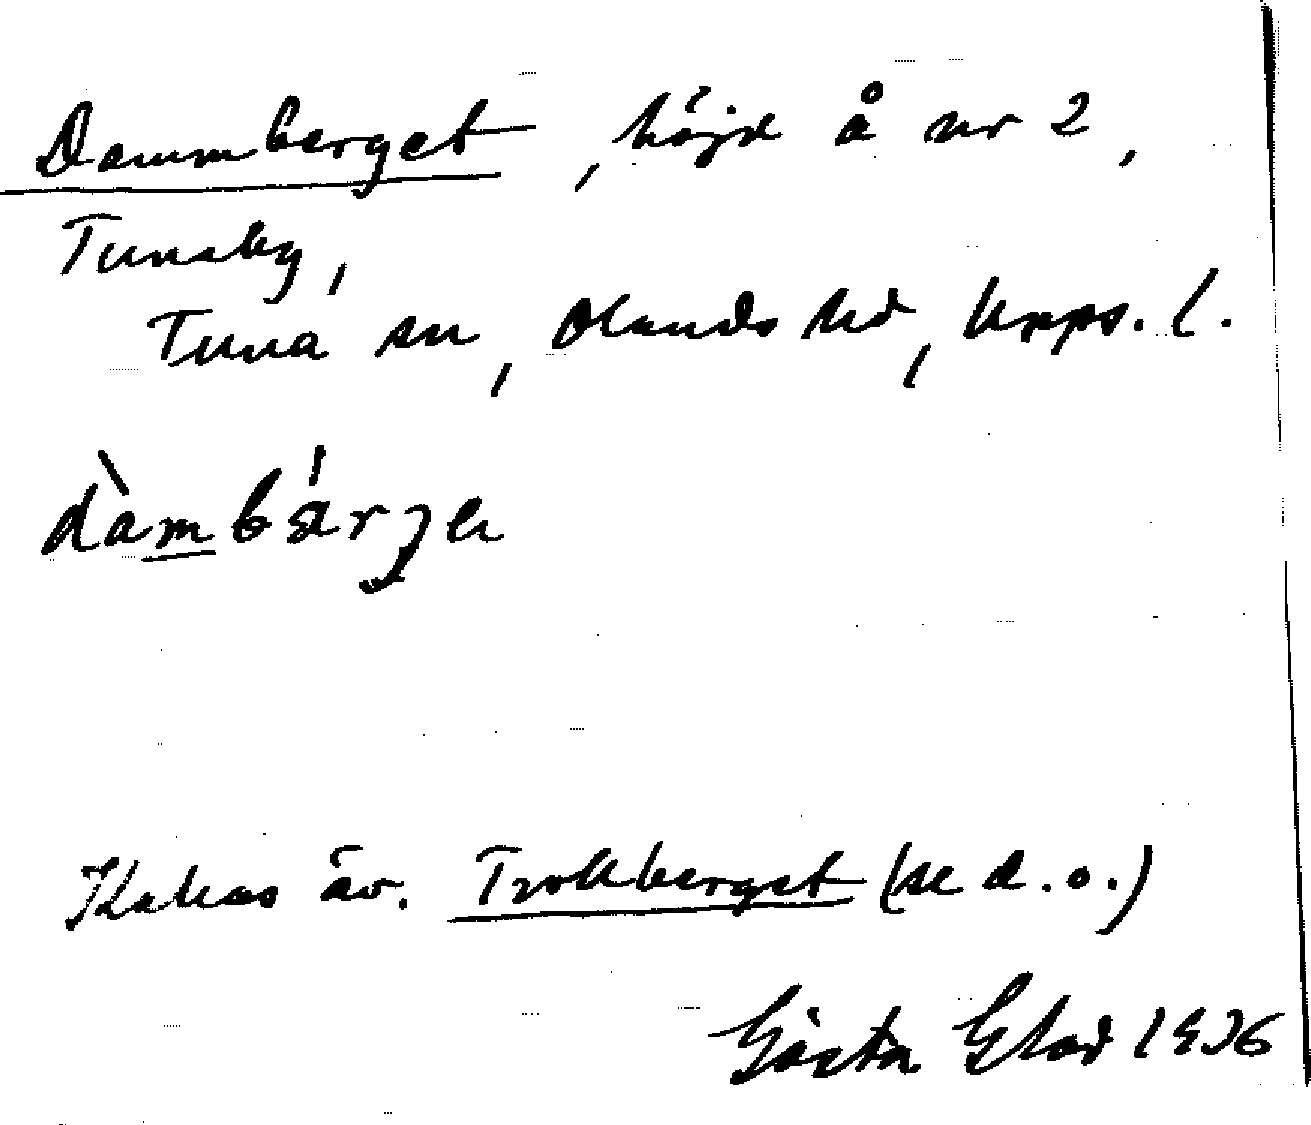 Dammberget, höjd å nr 2,
Tunaby,
Tuna sn, Olands hd, Upps. l.
dàmbä́rjɛ
Kallas äv. Trollberget (se d.o.)
Gösta Glad 1936